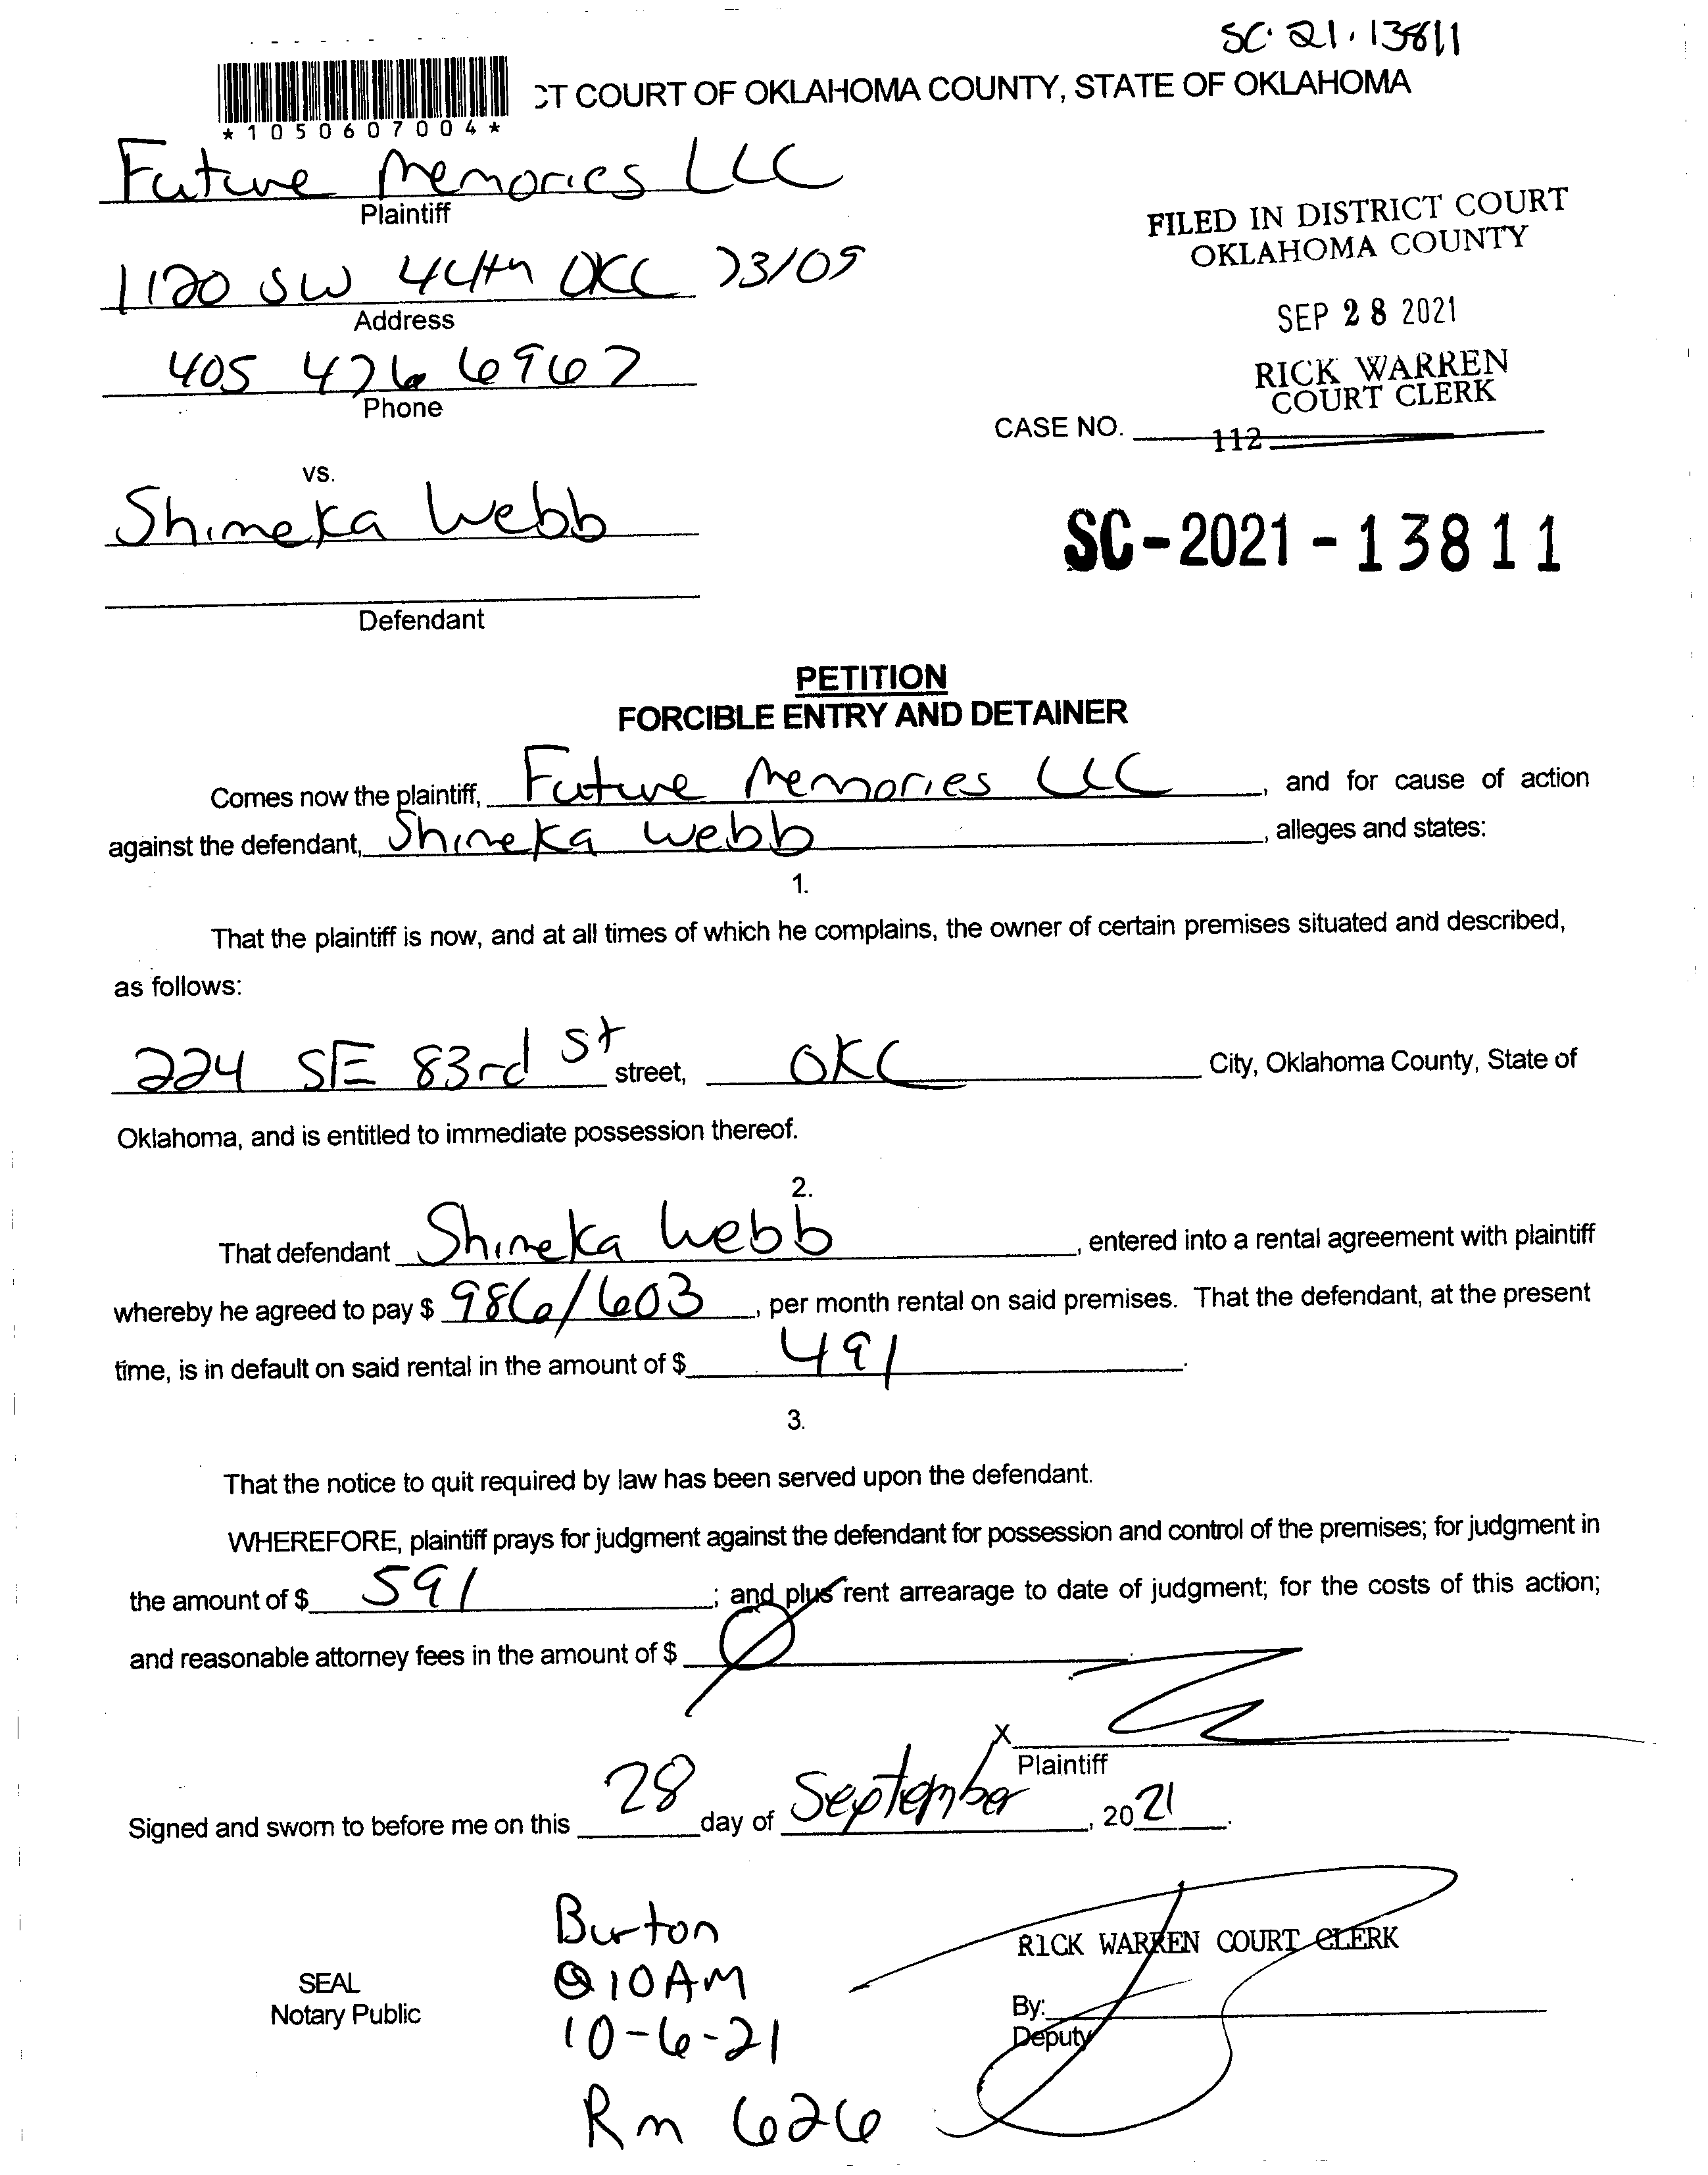 SC·21·13811
CT COURT OF OKLAHOMA COUNTY, STATE OF OKLAHOMA
*1050607004*
Future Memories LLC
Plaintiff
1120 SW 44th OKC 73109
Address
405 476 6967
Phone
FILED IN DISTRICT COURT
OKLAHOMA COUNTY
SEP 28 2021
RICK WARREN
COURT CLERK
CASE NO. 112
vs.
Shimeka Webb
SC-2021-13811
Defendant
PETITION
FORCIBLE ENTRY AND DETAINER
Comes now the plaintiff, Future Memories LLC, and for cause of action
against the defendant, Shimeka Webb, alleges and states:
1.
That the plaintiff is now, and at all times of which he complains, the owner of certain premises situated and described,
as follows:
224 SE 83rd St street, OKC City, Oklahoma County, State of
Oklahoma, and is entitled to immediate possession thereof.
2.
That defendant Shimeka Webb, entered into a rental agreement with plaintiff
whereby he agreed to pay $ 986/603, per month rental on said premises. That the defendant, at the present
time, is in default on said rental in the amount of $ 491.
3.
That the notice to quit required by law has been served upon the defendant.
WHEREFORE, plaintiff prays for judgment against the defendant for possession and control of the premises; for judgment in
the amount of $ 591; and plus rent arrearage to date of judgment; for the costs of this action;
and reasonable attorney fees in the amount of $ Ø.
X
Plaintiff
Signed and sworn to before me on this 28 day of September, 2021.
Burton
@10AM
10-6-21
Rm 626
SEAL
Notary Public
RICK WARREN COURT CLERK
By:
Deputy